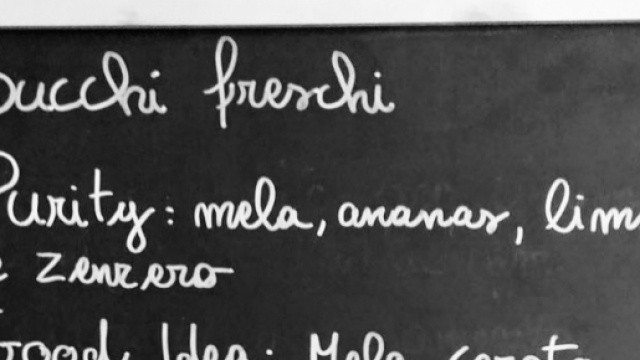 Succhi freschi
Purity: mela, ananas, lim
e zenzero
Good Idea: Mela carota